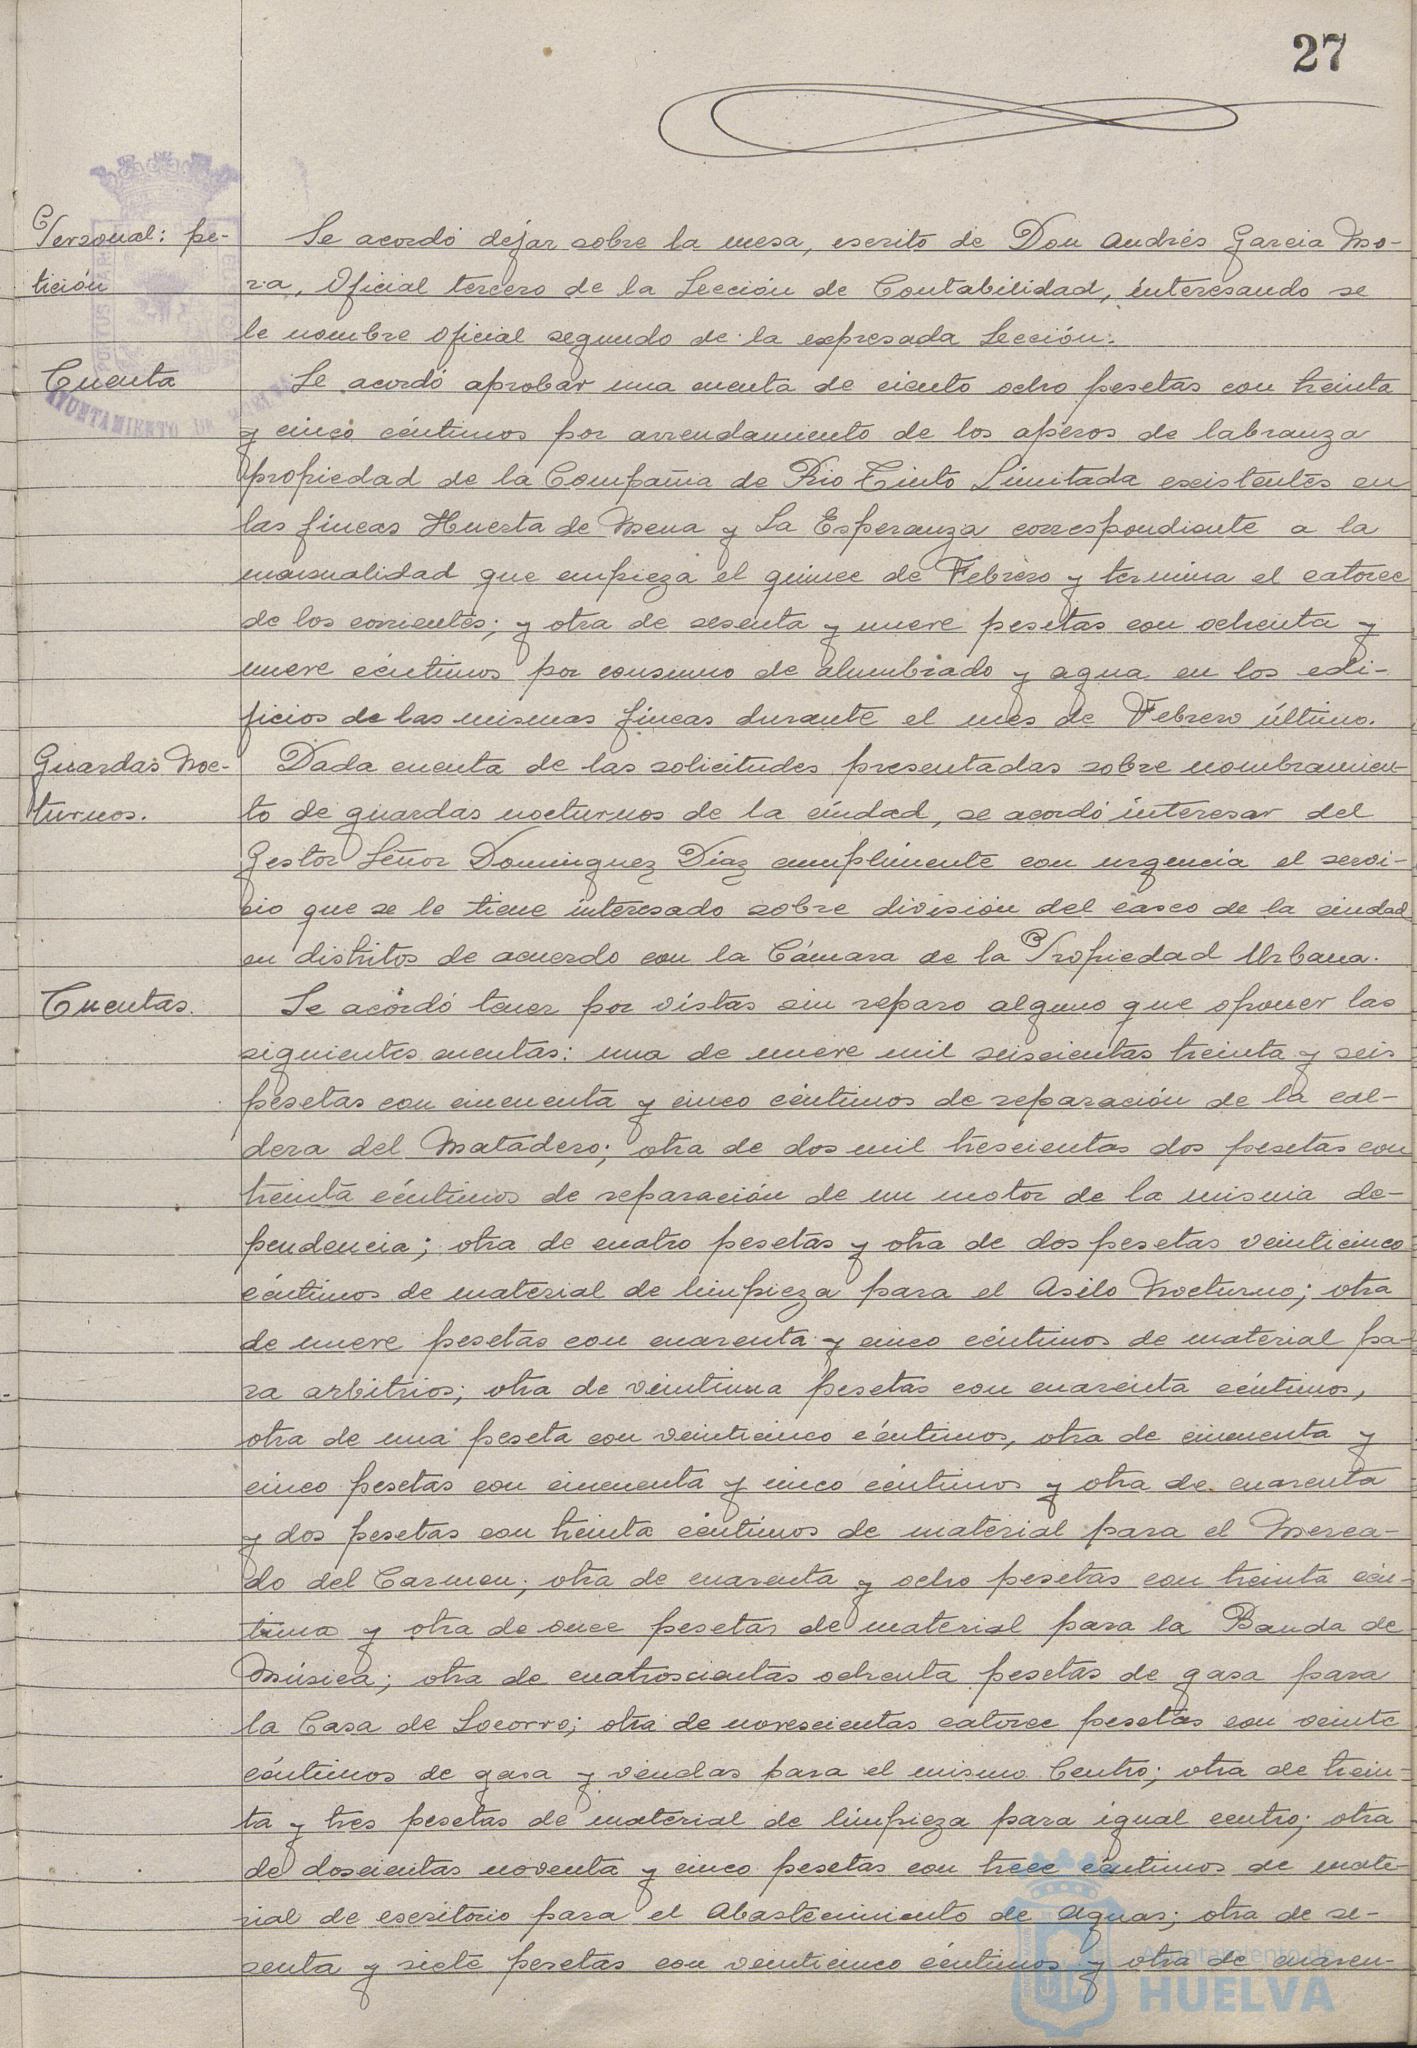 27
Personal: pe-
tición
Se acordó dejar sobre la mesa, escrito de Don Andrés Garcia Mo-
ra, Oficial tercero de la Sección de Contabilidad, interesando se
le nombre Oficial segundo de la expresada Sección.
Cuenta
Se acordó aprobar una cuenta de ciento ocho pesetas con treinta
y cinco céntimos por arrendamiento de los aperos de labranza
propiedad de la Compañia de Rio Tinto Limitada existentes en
las fincas Huerta de Mena y La Esperanza correspondiente a la
mensualidad que empieza el quince de Febrero y termina el catorce
de los corrientes; y otra de sesenta y nueve pesetas con ochenta y
nueve céntimos por consumo de alumbrado y agua en los edi-
ficios de las mismas fincas durante el mes de Febrero último.
Guardas Noc-
turnos.
Dada cuenta de las solicitudes presentadas sobre nombramien-
to de guardas nocturnos de la ciudad, se acordó interesar del
Gestor Señor Dominguez Diaz cumplimente con urgencia el servi-
cio que se le tiene interesado sobre división del casco de la ciudad
en distritos de acuerdo con la Cámara de la Propiedad Urbana.
Cuentas.
Se acordó tener por vistas sin reparo alguno que oponer las
siguientes cuentas: una de nueve mil seiscientas treinta y seis
pesetas con cincuenta y cinco céntimos de reparación de la cal-
dera del Matadero; otra de dos mil trescientas dos pesetas con
treinta céntimos de reparación de un motor de la misma de-
pendencia; otra de cuatro pesetas y otra de dos pesetas veinticinco
céntimos de material de limpieza para el Asilo Nocturno; otra
de nueve pesetas con cuarenta y cinco céntimos de material pa-
ra arbitrios; otra de veintiuna pesetas con cuarenta céntimos,
otra de una peseta con veinticinco céntimos, otra de cincuenta y
cinco pesetas con cincuenta y cinco céntimos y otra de cuarenta
y dos pesetas con treinta céntimos de material para el Merca-
do del Carmen; otra de cuarenta y ocho pesetas con treinta cén-
timos y otra de once pesetas de material para la Banda de
Música; otra de cuatroscientas ochenta pesetas de gasa para
la Casa de Socorro; otra de novescientas catorce pesetas con veinte
céntimos de gasa y vendas para el mismo Centro; otra de trein-
ta y tres pesetas de material de limpieza para igual centro; otra
de doscientas noventa y cinco pesetas con trece céntimos de mate-
rial de escritorio para el Abastecimiento de Aguas; otra de se-
senta y siete pesetas con veinticinco céntimos y otra de cuaren-
AYUNTAMIENTO DE HUELVA
Ayuntamiento de
HUELVA